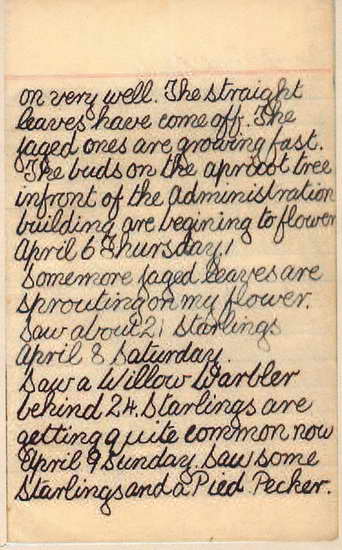 on very well. The straight
leaves have come off. The
jaged ones are growing fast.
The buds on the apricot tree
infront of the Administration
building are begining to flower
April 6 Thursday
Somemore jaged leaves are
sprouting on my flower.
Saw about 21 Starlings
April 8 Saturday.
Saw a Willow Warbler
behind 24. Starlings are
getting quite common now
April 9 Sunday. Saw some
Starlings and a Pied Pecker.